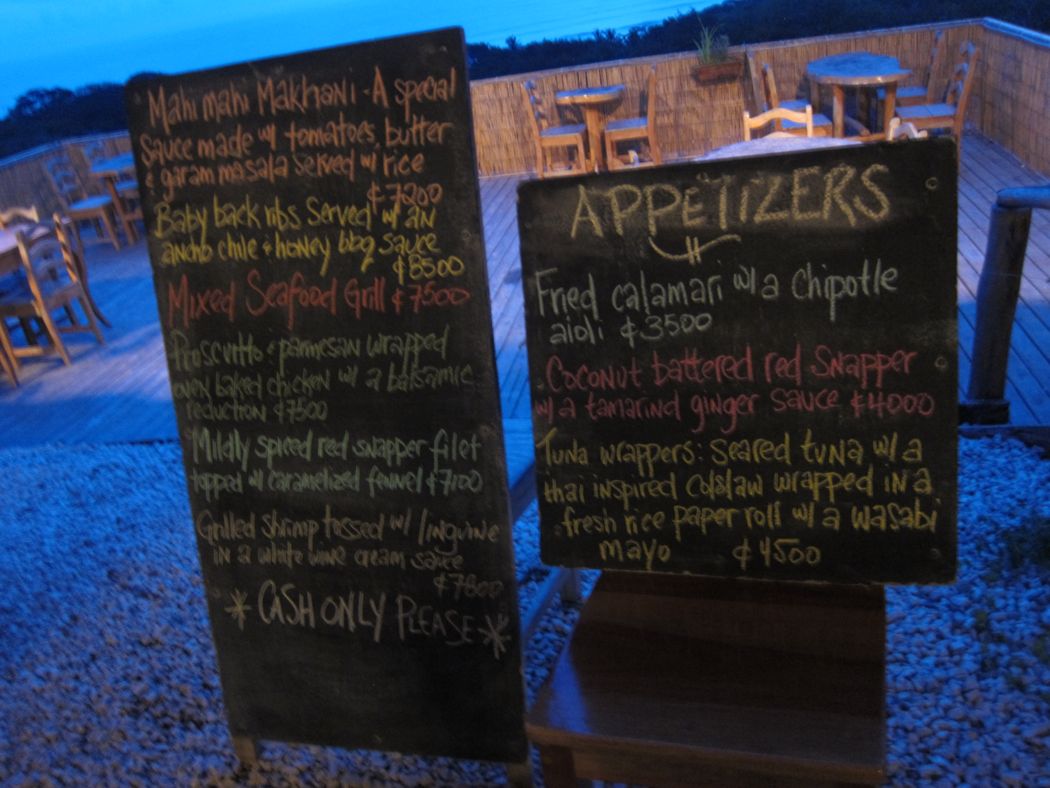 Mahi mahi Makhani - A special
sauce made w/ tomatoes, butter
& garam masala served w/ rice
₡7200
Baby back ribs served w/ an
ancho chile & honey bbq sauce
₡8500
Mixed Seafood Grill ₡7500
Proscutto & parmesan wrapped
oven baked chicken w/ a balsamic
reduction ₡7500
Mildly spiced red snapper filet
topped w/ caramelized fennel ₡7100
Grilled shrimp tossed w/ linguine
in a white wine cream sauce
₡7800
* CASH ONLY PLEASE *
APPETIZERS
Fried calamari w/ a chipotle
aioli ₡3500
Coconut battered red snapper
w/ a tamarind ginger sauce ₡4000
Tuna wrappers: seared tuna w/ a
thai inspired colslaw wrapped in a
fresh rice paper roll w/ a wasabi
mayo ₡4500